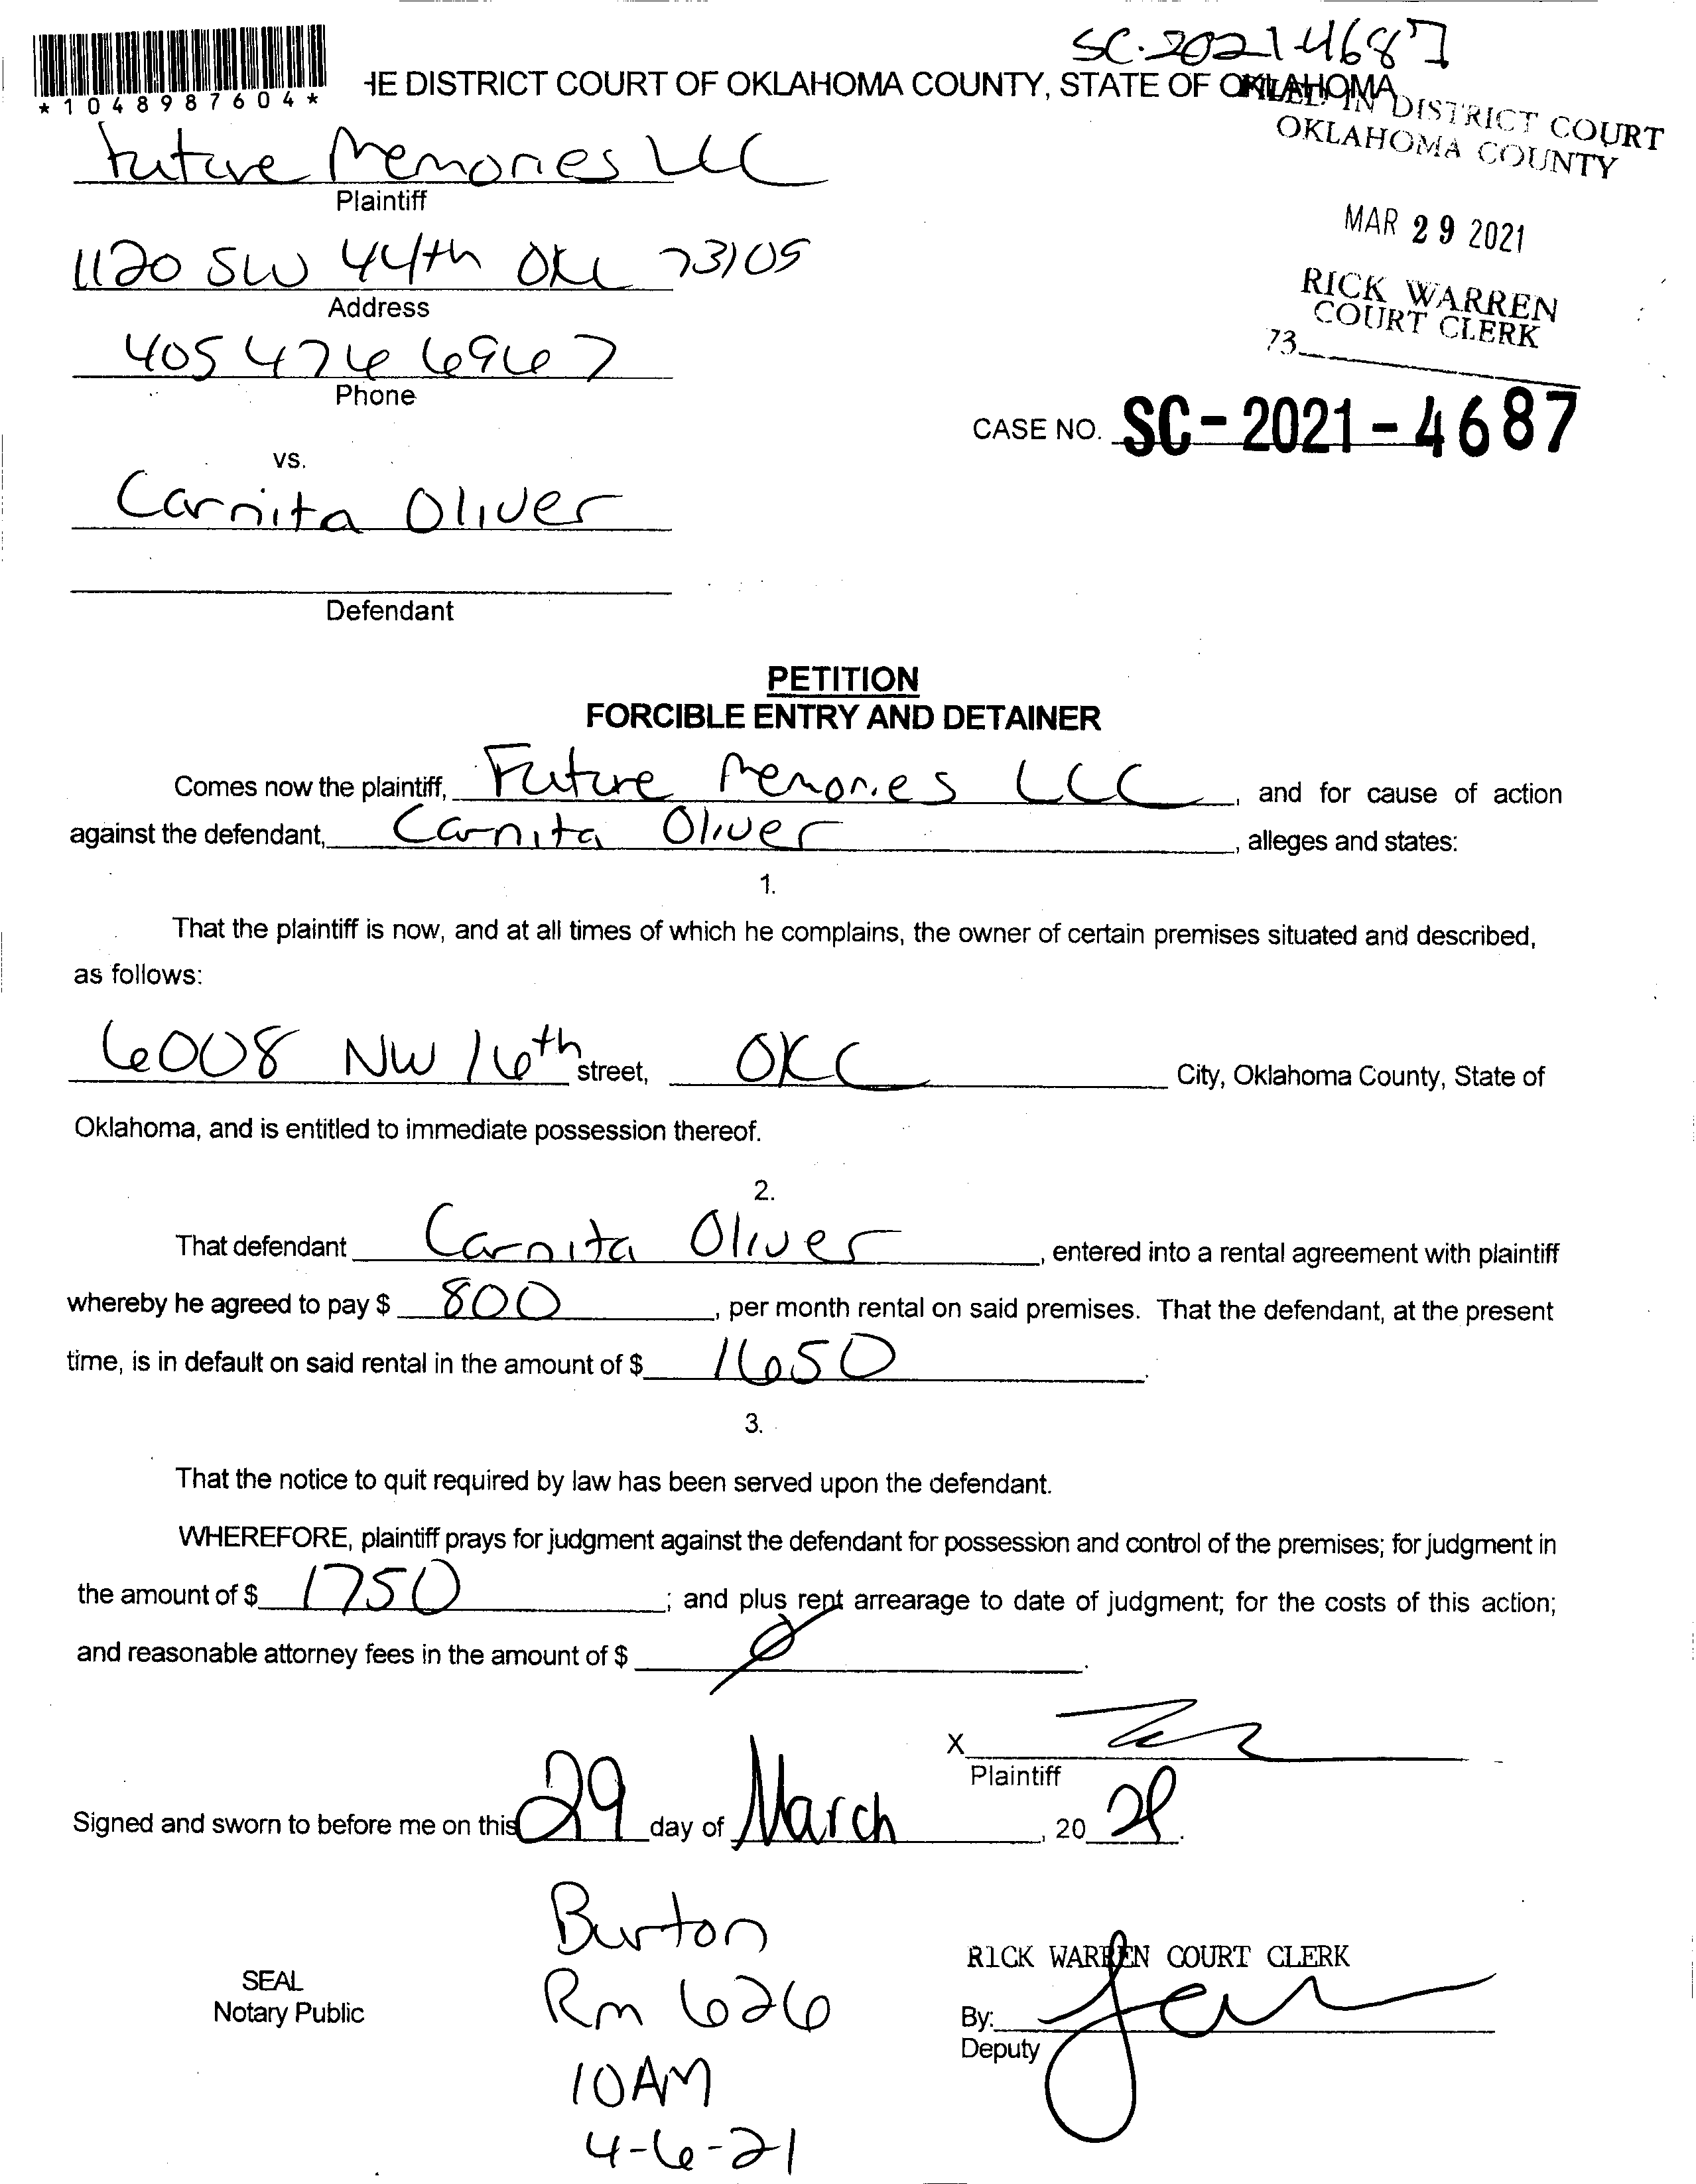 SC-2021-4687
*1048987604*
HE DISTRICT COURT OF OKLAHOMA COUNTY, STATE OF OKLAHOMA
FILED IN DISTRICT COURT
OKLAHOMA COUNTY
Future Memories LLC
Plaintiff
MAR 29 2021
1120 SW 44th OKC 73109
Address
RICK WARREN
COURT CLERK
73
405 476 6967
Phone
CASE NO. SC-2021-4687
vs.
Carnita Oliver
Defendant
PETITION
FORCIBLE ENTRY AND DETAINER
Comes now the plaintiff, Future Memories LLC, and for cause of action
against the defendant, Carnita Oliver, alleges and states:
1.
That the plaintiff is now, and at all times of which he complains, the owner of certain premises situated and described,
as follows:
6008 NW 16th street, OKC City, Oklahoma County, State of
Oklahoma, and is entitled to immediate possession thereof.
2.
That defendant Carnita Oliver, entered into a rental agreement with plaintiff
whereby he agreed to pay $ 800, per month rental on said premises. That the defendant, at the present
time, is in default on said rental in the amount of $ 1650.
3.
That the notice to quit required by law has been served upon the defendant.
WHEREFORE, plaintiff prays for judgment against the defendant for possession and control of the premises; for judgment in
the amount of $ 1750; and plus rent arrearage to date of judgment; for the costs of this action;
and reasonable attorney fees in the amount of $ Ø.
X
Plaintiff
Signed and sworn to before me on this 29 day of March, 20 21.
Burton
RICK WARREN COURT CLERK
SEAL
Notary Public
Rm 626
By:
Deputy
10AM
4-6-21